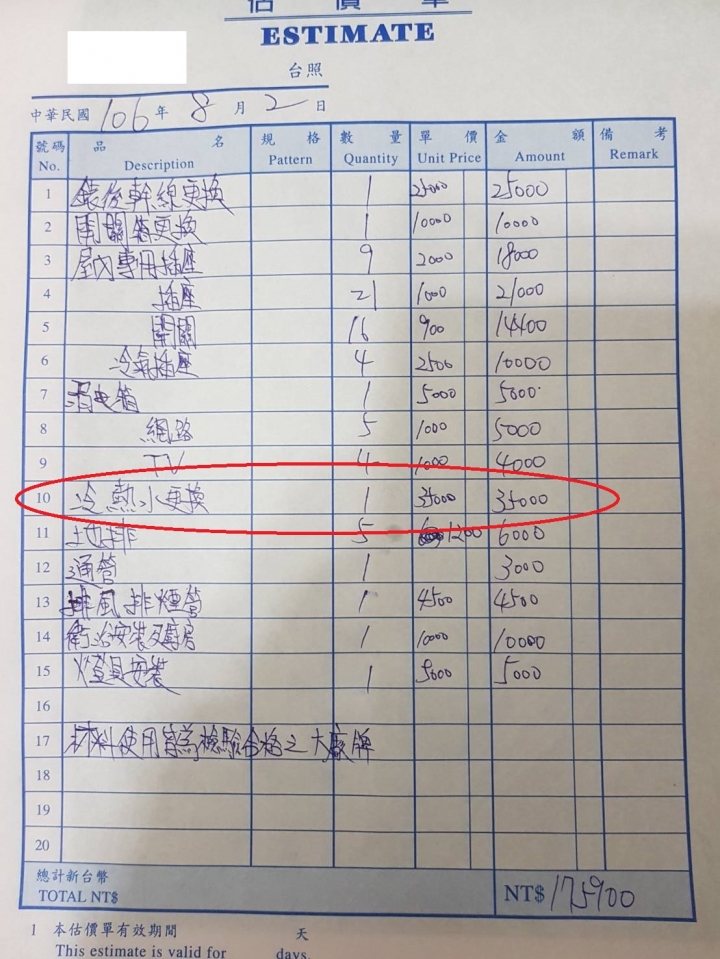 估價單
ESTIMATE
台照
中華民國 106 年 8 月 2 日
號碼 品名 規格 數量 單價 金額 備考
No. Description Pattern Quantity Unit Price Amount Remark
1 錶後幹線更換 1 25000 25000
2 開關箱更換 1 10000 10000
3 屋內專用插座 9 2000 18000
4 插座 21 1000 21000
5 開關 16 900 14400
6 冷氣插座 4 2500 10000
7 弱电箱 1 5000 5000
8 網路 5 1000 5000
9 TV 4 1000 4000
10 冷熱水更換 1 35000 35000
11 地排 5 1200 6000
12 通管 1 3000
13 排風排煙管 1 4500 4500
14 衛浴安裝及廚房 1 10000 10000
15 燈具安裝 1 5000 5000
16
17 材料使用皆為檢驗合格之大廠牌
18
19
20
總計新台幣
TOTAL NT$ NT$ 175900
1 本估價單有效期間 天
This estimate is valid for days.